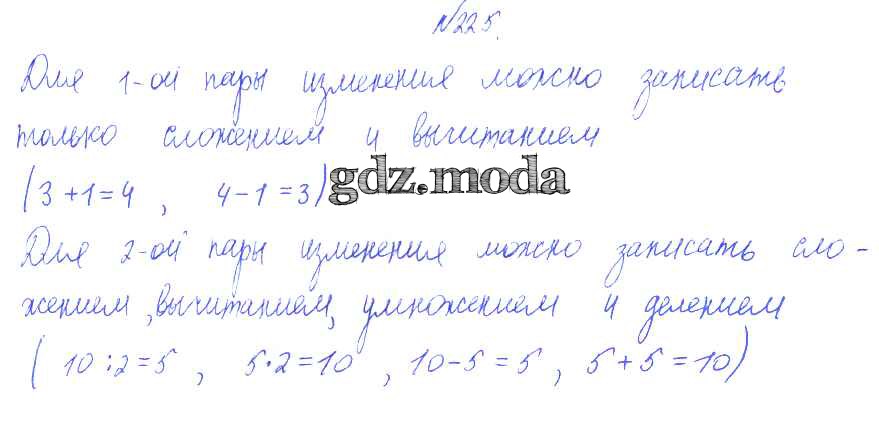 №225.
Для 1-ой пары изменения можно записать
только сложением и вычитанием
(3+1=4, 4-1=3) gdz.moda
Для 2-ой пары изменения можно записать сло-
жением, вычитанием, умножением и делением
(10:2=5, 5·2=10, 10-5=5, 5+5=10)